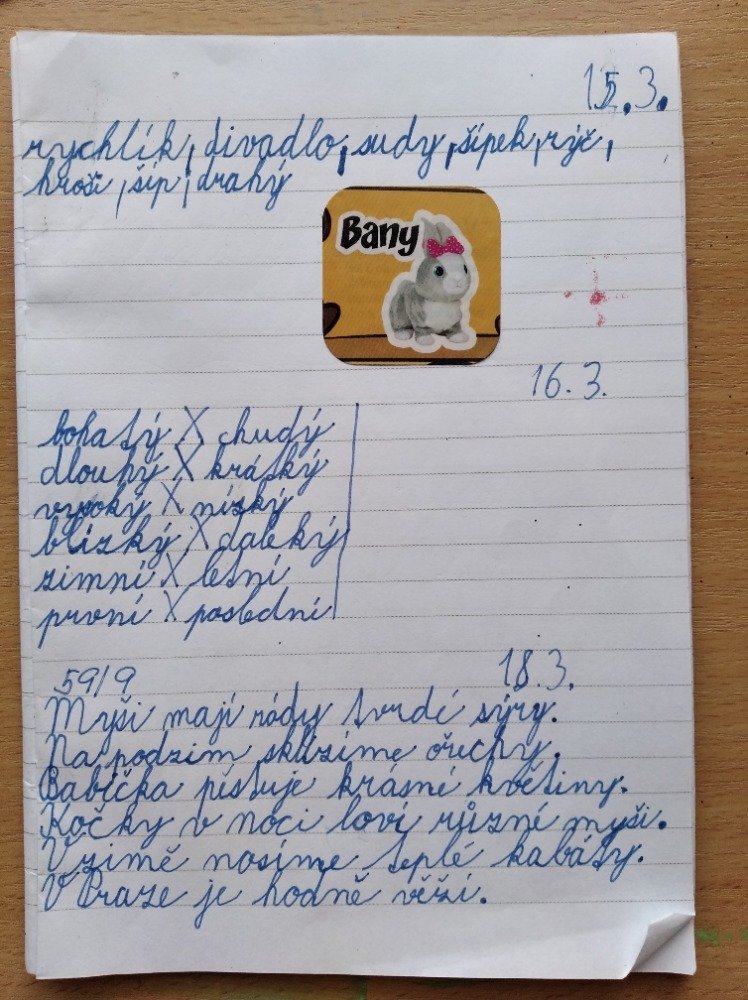 15.3.
rychlík, divadlo, sudy, šípek, rýč,
hroši, šíp, drahý
Bany
16.3.
bohatý X chudý
dlouhý X krátký
vysoký X nízký
blízký X daleký
zimní X letní
první X poslední
59/9
18.3.
Myši mají rády tvrdé sýry.
Na podzim sklízíme ořechy.
Babička pěstuje krásné květiny.
Kočky v noci loví různé myši.
V zimě nosíme teplé kabáty.
V Praze je hodně věží.